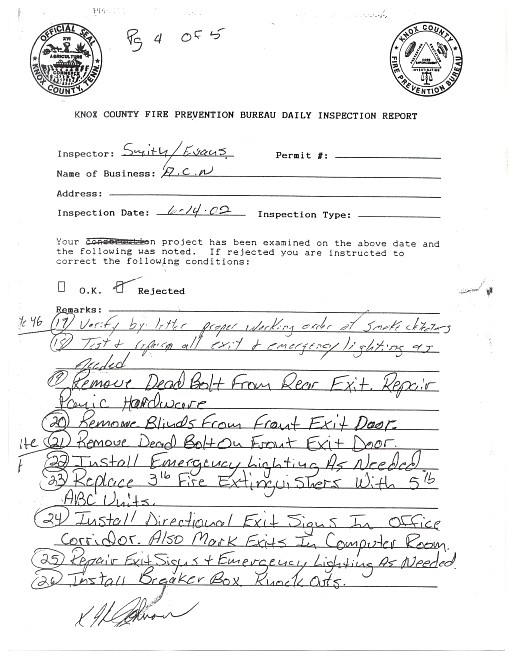 Pg 4 of 5
OFFICIAL SEAL
XVI
AGRICULTURE
COMMERCE
KNOX COUNTY, TENN.
KNOX COUNTY
FIRE PREVENTION BUREAU
INVESTIGATION
KNOX COUNTY FIRE PREVENTION BUREAU DAILY INSPECTION REPORT
Inspector: Smith/Evans Permit #:
Name of Business: A.C.N
Address:
Inspection Date: 6-14-02 Inspection Type:
Your construction project has been examined on the above date and
the following was noted. If rejected you are instructed to
correct the following conditions:
O.K. Rejected
Remarks:
46 (17) Verify by letter proper working order of smoke detectors
(18) Test & all exit & emergency lighting as
needed
(19) Remove Dead Bolt From Rear Exit. Repair
Panic Hardware
(20) Remove Blinds From Front Exit Door.
(21) Remove Dead Bolt On Front Exit Door.
(22) Install Emergency Lighting As Needed
(23) Replace 3lb Fire Extinguishers With 5lb
ABC Units.
(24) Install Directional Exit Signs In Office
Corridor. Also Mark Exits In Computer Room.
(25) Repair Exit Signs & Emergency Lighting As Needed.
(26) Install Breaker Box Knock Outs.